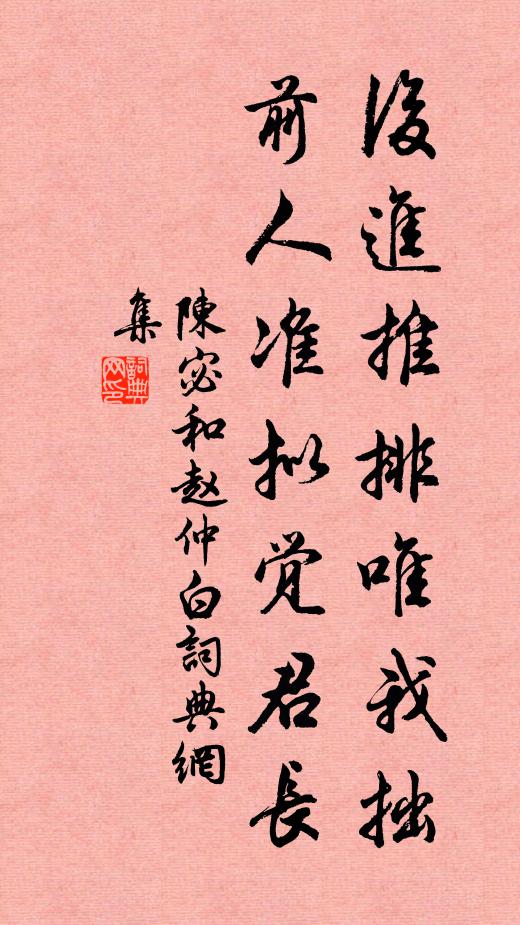 後進推排唯我拙
前人准拟觉君長
陳宓和赵仲白詞典網
集
詞典網印